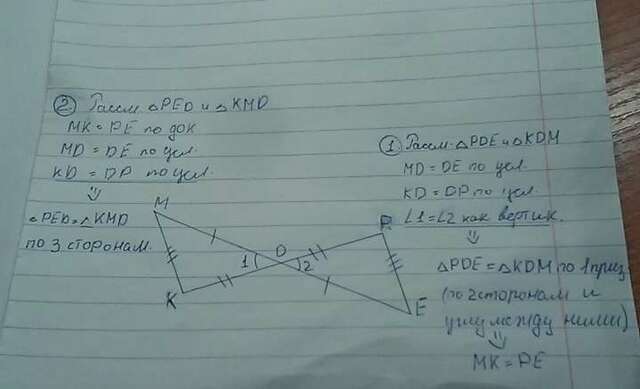 ② Рассм. △PED и △KMD
MK = PE по док
MD = DE по усл.
KD = DP по усл.
⇓
△PED = △KMD
по 3 сторонам.
① Рассм. △PDE и △KDM
MD = DE по усл.
KD = DP по усл.
∠1 = ∠2 как вертик.
⇓
△PDE = △KDM по 1 приз.
(по 2 сторонам и
углу между ними)
⇓
MK = PE
M
P
D
1 2
K
E